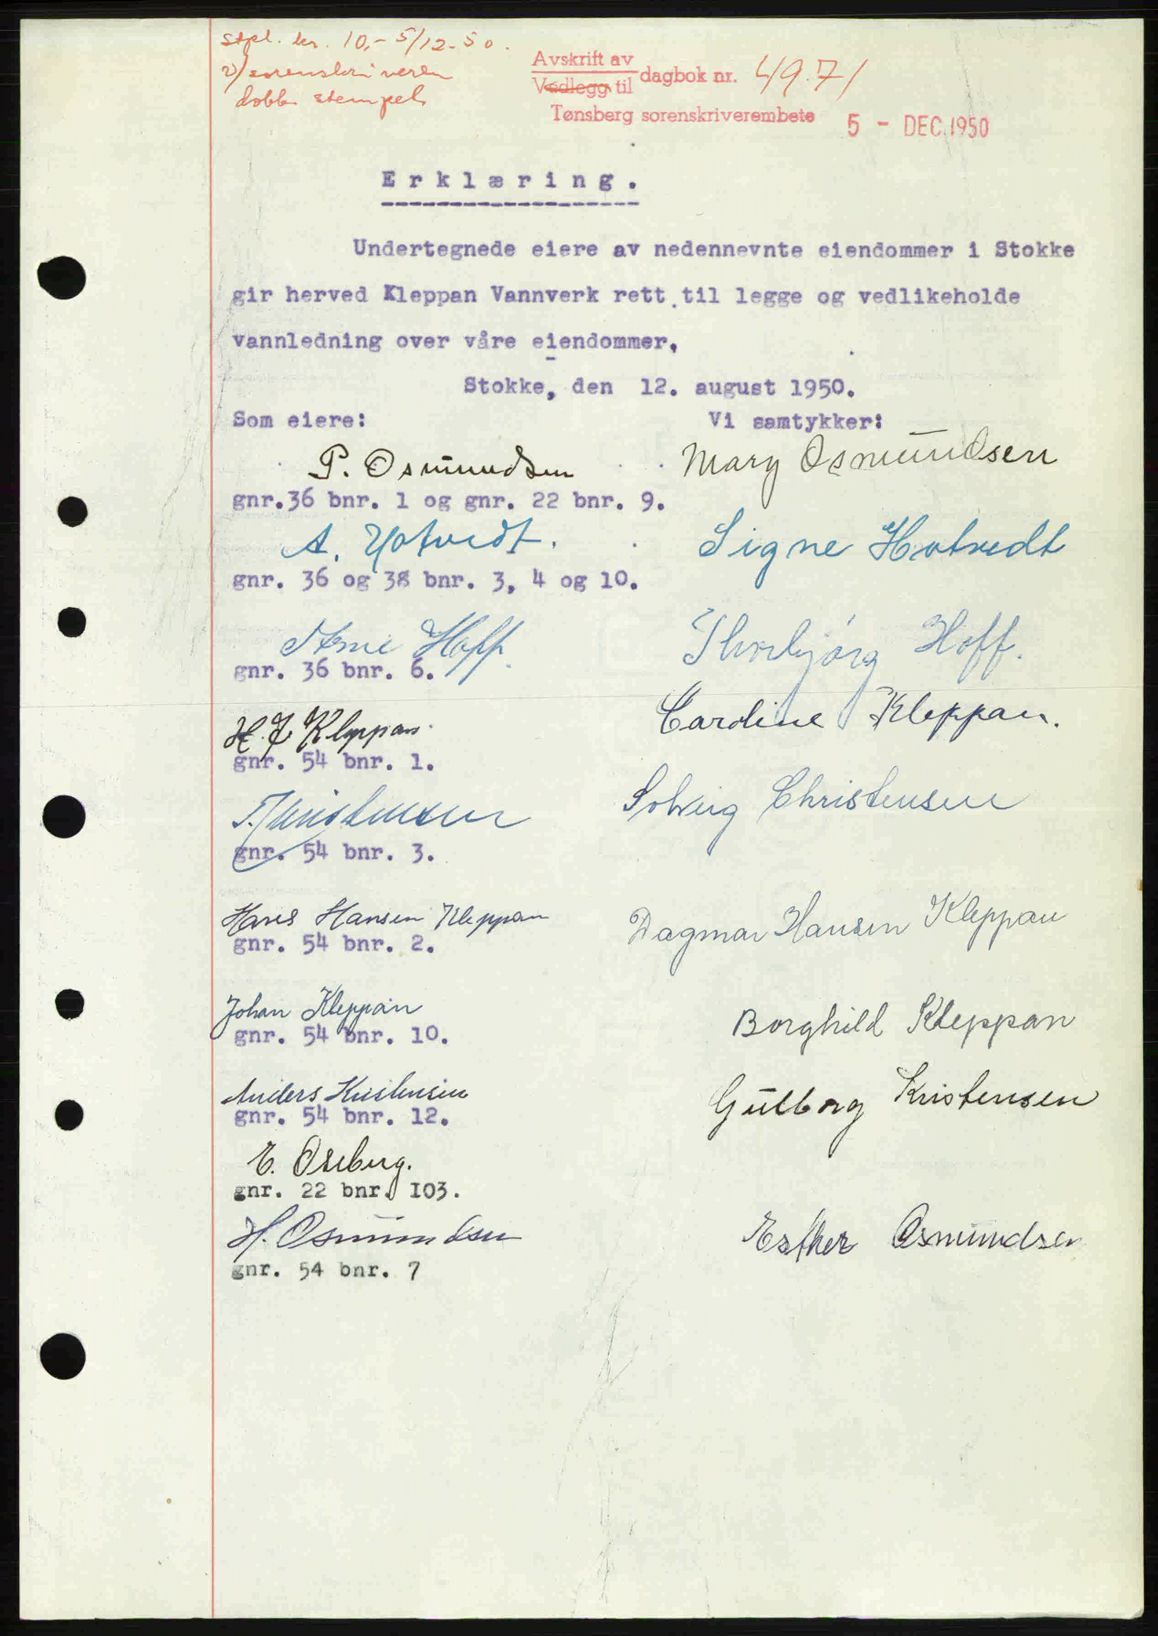 stpl. kr. 10,- 5/12-50.
v/ sorenskriveren
dobb. stempel
Avskrift av
Vedlegg til dagbok nr. 4971
Tønsberg sorenskriverembete 5 - DEC. 1950
Erklæring.
Undertegnede eiere av nedennevnte eiendommer i Stokke
gir herved Kleppan Vannverk rett til legge og vedlikeholde
vannledning over våre eiendommer,
Stokke, den 12. august 1950.
Som eiere: Vi samtykker:
P. Osmundsen Mary Osmundsen
gnr.36 bnr. 1 og gnr. 22 bnr. 9.
A. Hotvedt. Signe Hotvedt
gnr. 36 og 38 bnr. 3, 4 og 10.
Arne Hoff. Thorbjørg Hoff.
gnr. 36 bnr. 6.
H. J. Kleppan. Cardine Kleppan.
gnr. 54 bnr. 1.
Christensen Solveig Christensen
gnr. 54 bnr. 3.
Hans Hansen Kleppan Dagmar Hansen Kleppan
gnr. 54 bnr. 2.
Johan Kleppan Borghild Kleppan
gnr. 54 bnr. 10.
Anders Kristensen Gulborg Kristensen
gnr. 54 bnr. 12.
E. Oseberg.
gnr. 22 bnr. 103.
H. Osmundsen Esther Osmundsen
gnr. 54 bnr. 7